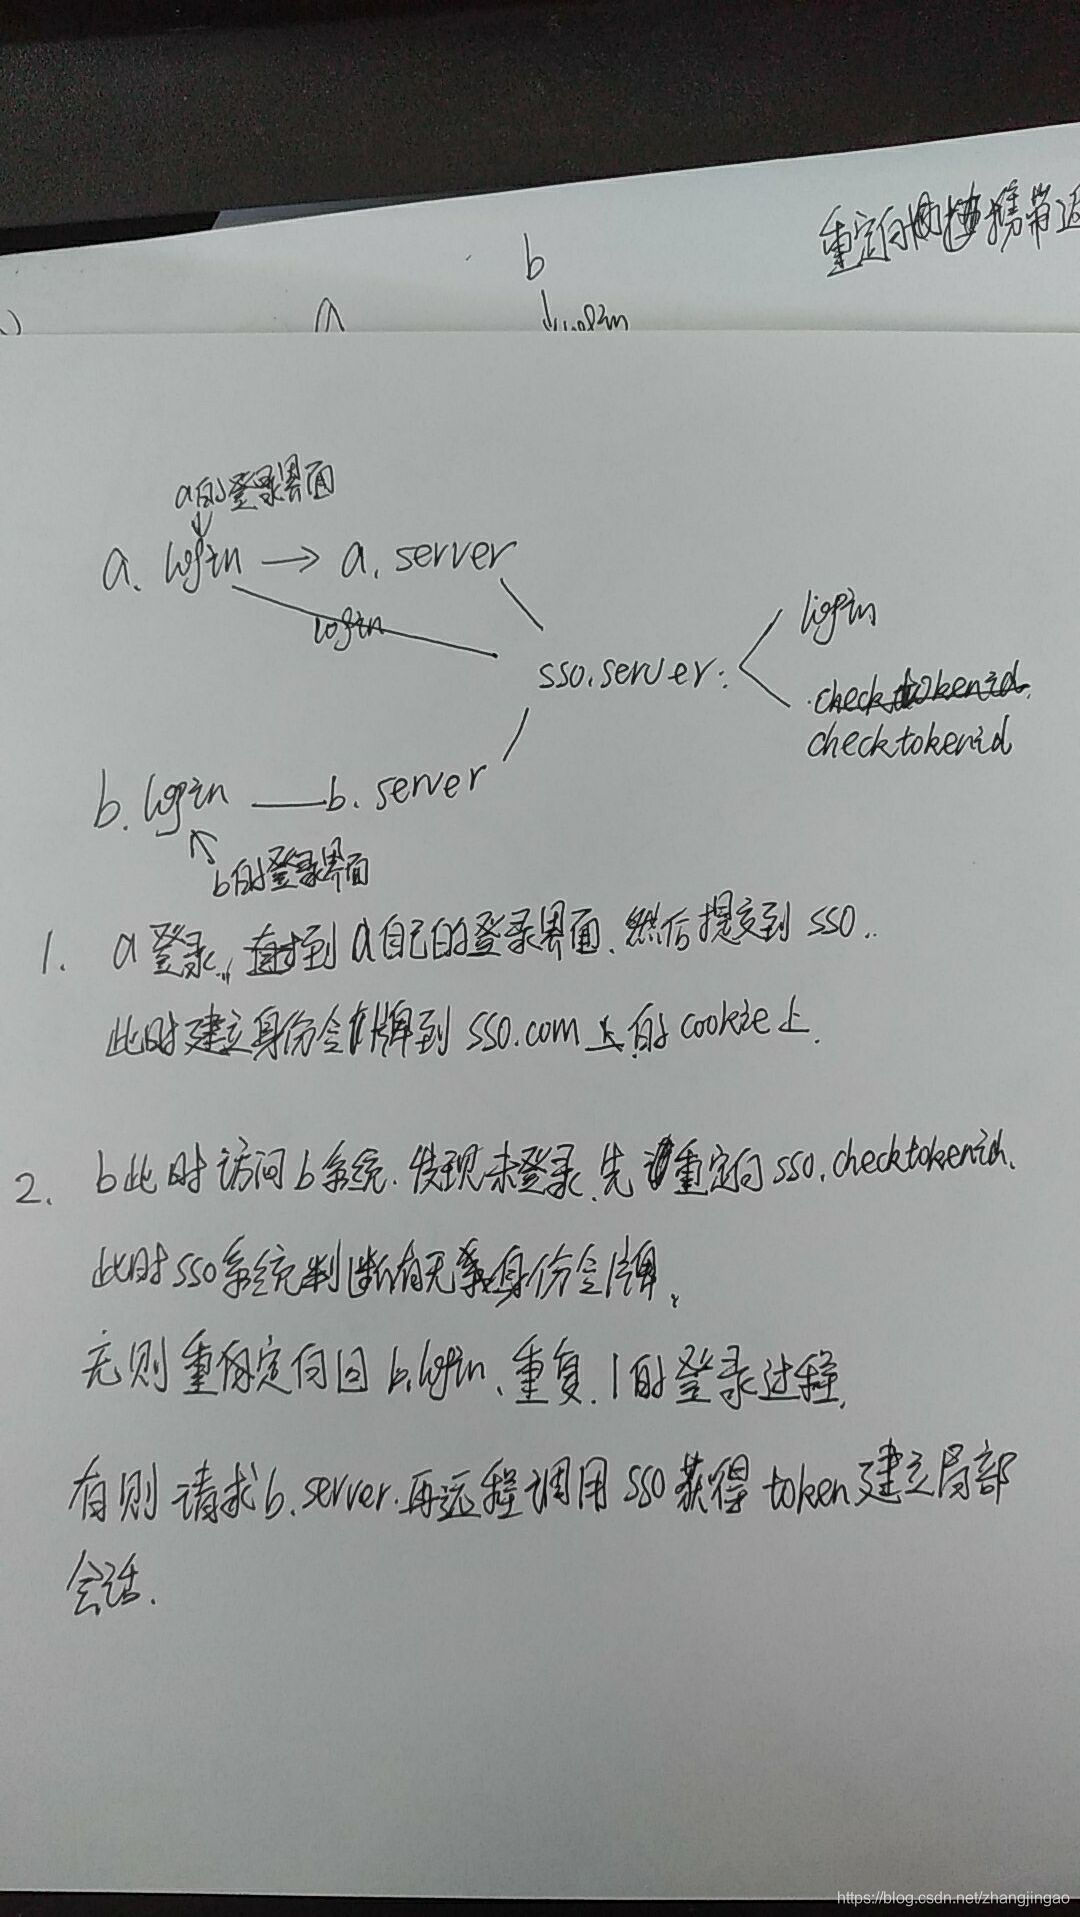 b
重定向 携带返
a
login
a的登录界面
a. login → a. server
login
login
sso.server:
checktokenid
b. login — b. server
b的登录界面
1. a登录, 直接到a自己的登录界面, 然后提交到 sso.
此时建立身份令牌到 sso.com 的 cookie上.
2. b此时访问b系统. 发现未登录, 先重定向 sso.checktokenid.
此时sso系统判断有无身份令牌.
无则重定向回 b.login, 重复 1的登录过程.
有则请求b.server.再远程调用 sso获得 token建立局部
会话.
https://blog.csdn.net/zhangjingao